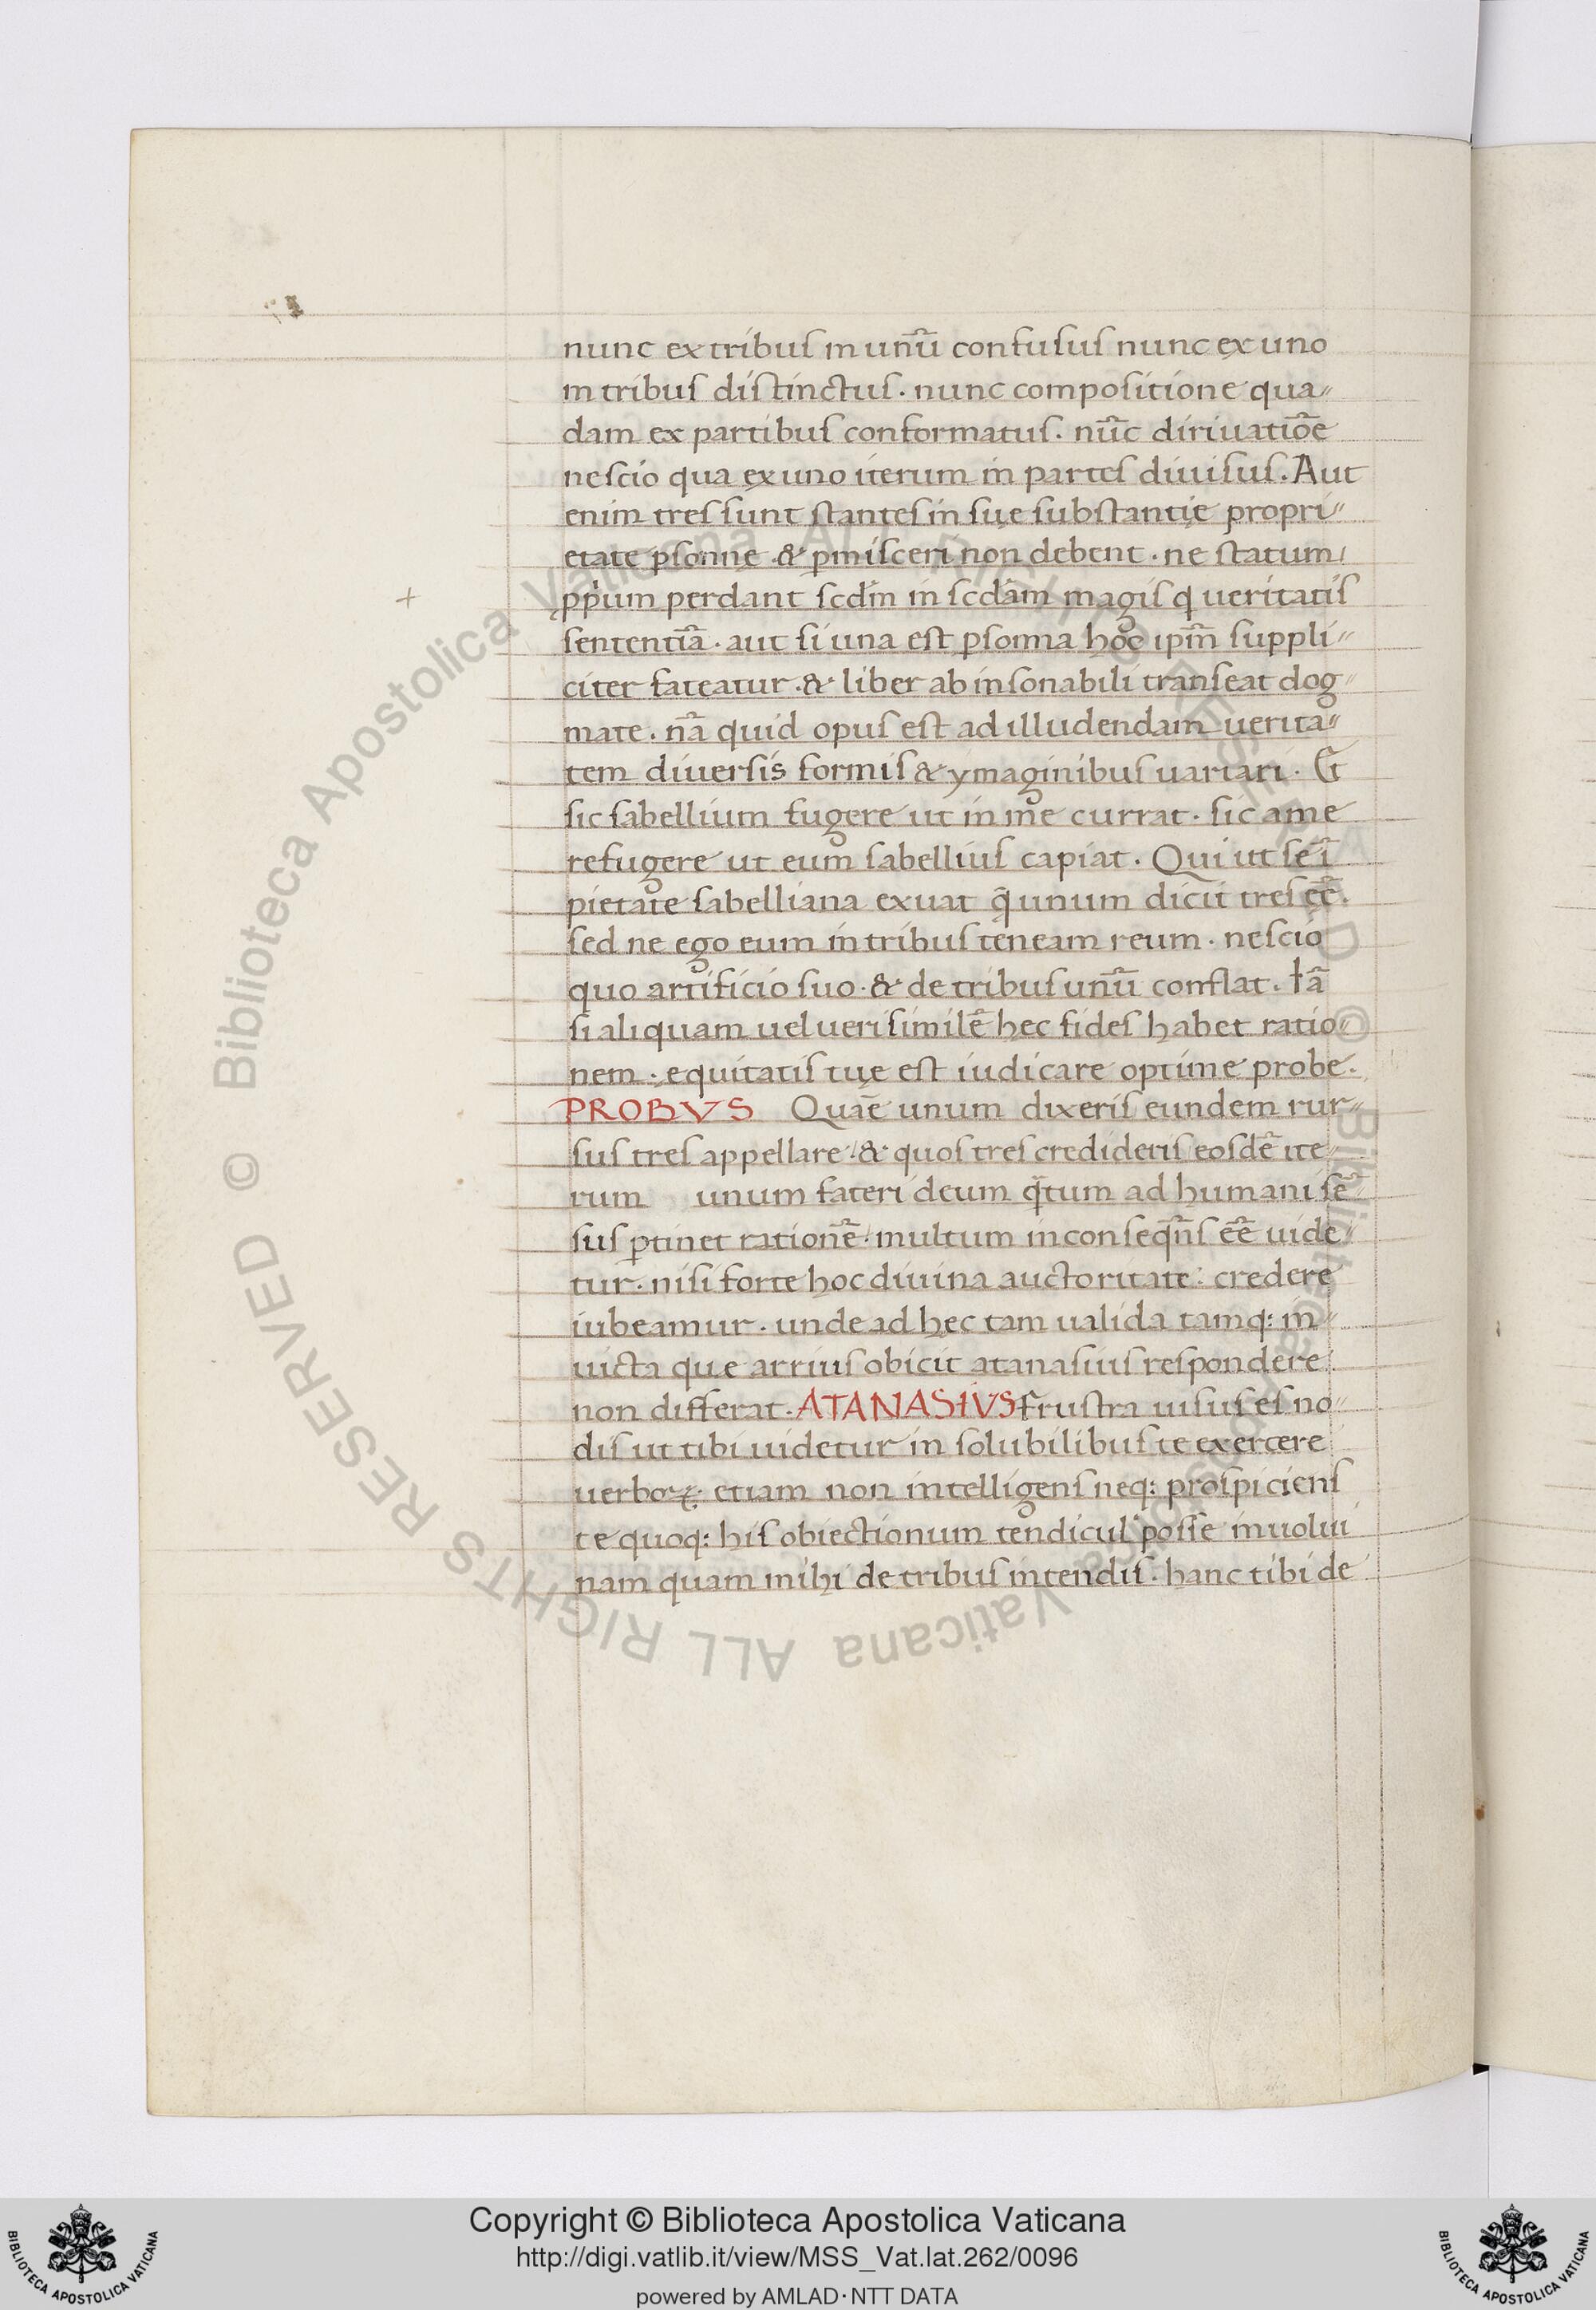 nunc ex tribus in unũ confusus nunc ex uno
in tribus distinctus · nunc compositione qua〃
dam ex partibus conformatus · nũc diriuatiõe
nescio qua ex uno iterum in partes diuisus. Aut
enim tres sunt stantes in suę substantię propri〃
etate ꝑsonnę · & ꝑmisceri non debent · ne statum
ꝓprium perdant scdm̃ in scdam magis q̃ ueritatis
sententiã · aut si una est ꝑsonna hoc ipm̃ suppli〃
citer fateatur · & liber ab insonabili transeat dog〃
mate · nã quid opus est ad illudendam uerita〃
tem diuersis formis & ymaginibus uariari · Et
sic sabellium fugere ut in me currat · sic a me
refugere ut eum sabellius capiat · Qui ut se ĩ
pietate sabelliana exuat q̃ unum dicit tres eẽ.
sed ne ego eum in tribus teneam reum · nescio
quo artificio suo · & de tribus unũ conflat · Iã
si aliquam uel uerisimilẽ hęc fides habet ratio〃
nem · equitatis tuę est iudicare optime probe ·
PROBVS Quẽ unum dixeris eundem rur〃
sus tres appellare · & quos tres credideris eosdẽ ite〃
rum unum fateri deum q̃tum ad humani sẽ〃
sus ꝑtinet rationẽ · multum inconseq̃ns eẽ uide〃
tur · nisi forte hoc diuina auctoritate credere
iubeamur · unde ad hęc tam ualida tamq: in〃
uicta que arrius obicit atanasius respondere
non differat · ATANASIVS Frustra uisus es no〃
dis ut tibi uidetur in solubilibus te exercere
uerboꝝ · etiam non intelligens neq: prospiciens
te quoq: his obiectionum tendicul' posse inuolui
nam quam mihi de tribus intendis · hanc tibi de
Copyright © Biblioteca Apostolica Vaticana
http://digi.vatlib.it/view/MSS_Vat.lat.262/0096
powered by AMLAD·NTT DATA
BIBLIOTECA APOSTOLICA VATICANA
BIBLIOTECA APOSTOLICA VATICANA
© Biblioteca Apostolica Vaticana ALL RIGHTS RESERVED © Biblioteca Apostolica Vaticana ALL RIGHTS RESERVED